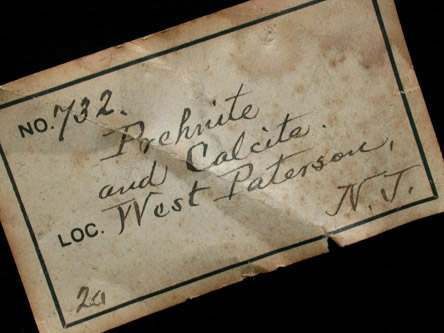 NO. 732.
Prehnite
and Calcite.
LOC. West Paterson,
N.J.
2a